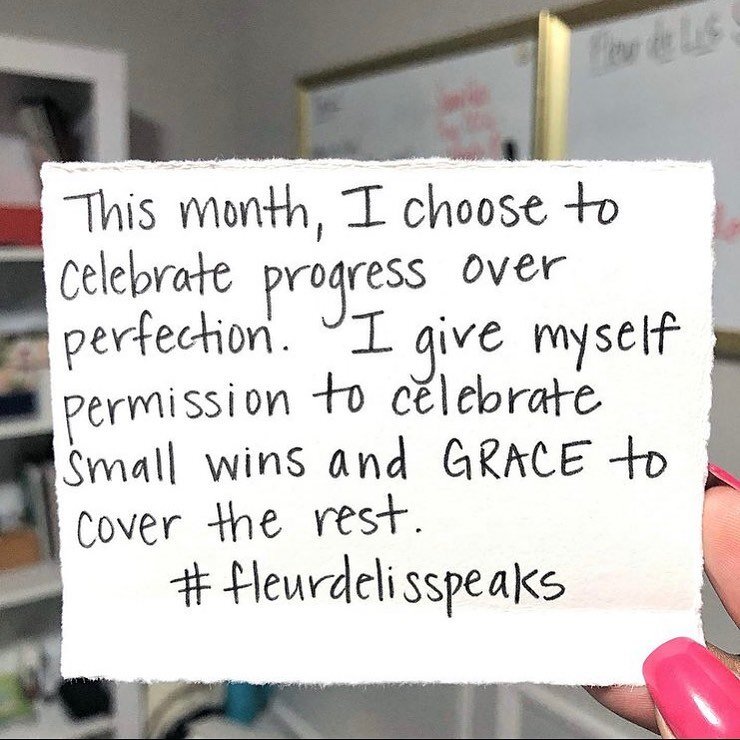 Fleur de Lis
This month, I choose to
celebrate progress over
perfection. I give myself
permission to celebrate
small wins and GRACE to
cover the rest.
#fleurdelisspeaks